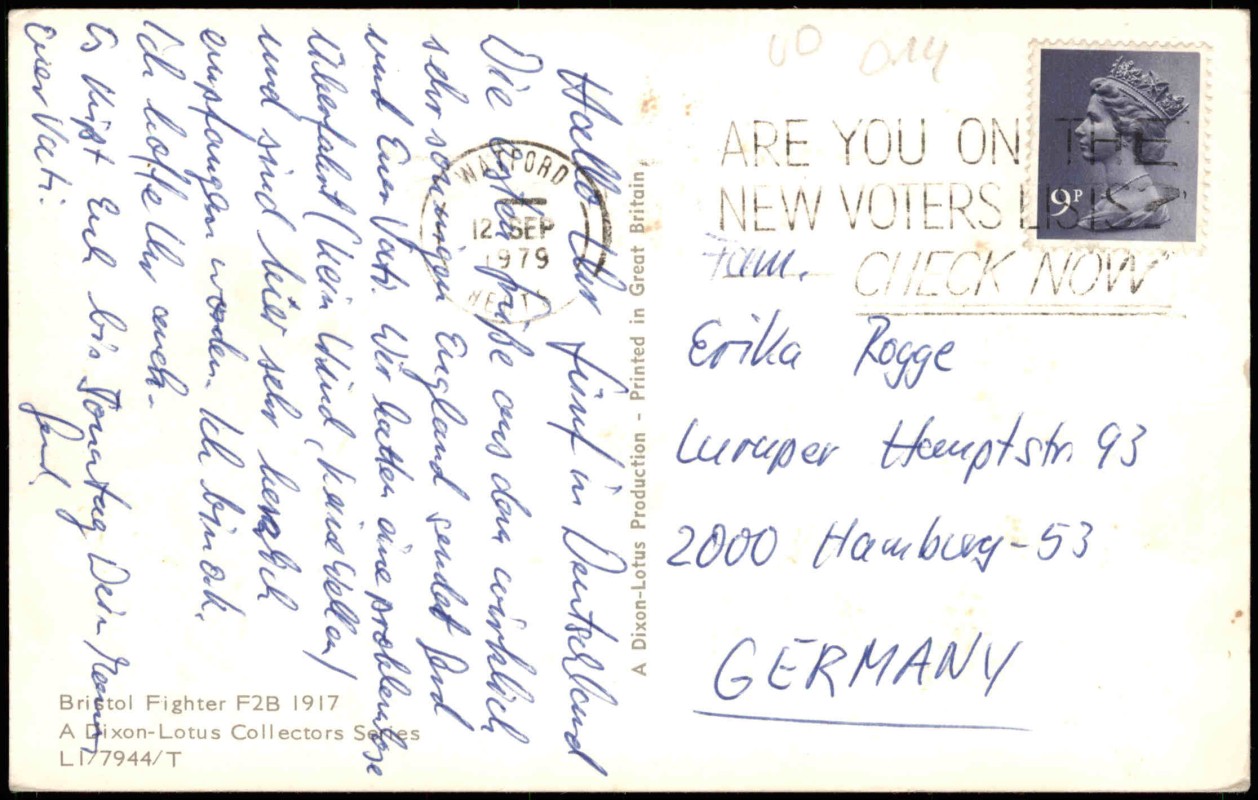 Hallo Ihr fünf in Deutschland
Die ersten Grüße aus dem wirklich
sehr sonnigen England sendet Gerd
und Euer Vati. Wir hatten eine problemlose
Überfahrt (kein Wind, keine Wellen)
und sind hier sehr herzlich
empfangen worden. Ich bin ok.
Ich hoffe Ihr auch.
Es küßt Euch bis Sonntag Dein Männe,
Euer Vati.
Gerd
WATFORD
12 SEP
1979
HERTS
ARE YOU ON THE
NEW VOTERS LISTS?
CHECK NOW
9P
Fam.
Erika Rogge
Luruper Hauptstr. 93
2000 Hamburg-53
GERMANY
A Dixon-Lotus Production - Printed in Great Britain
Bristol Fighter F2B 1917
A Dixon-Lotus Collectors Series
L1/7944/T